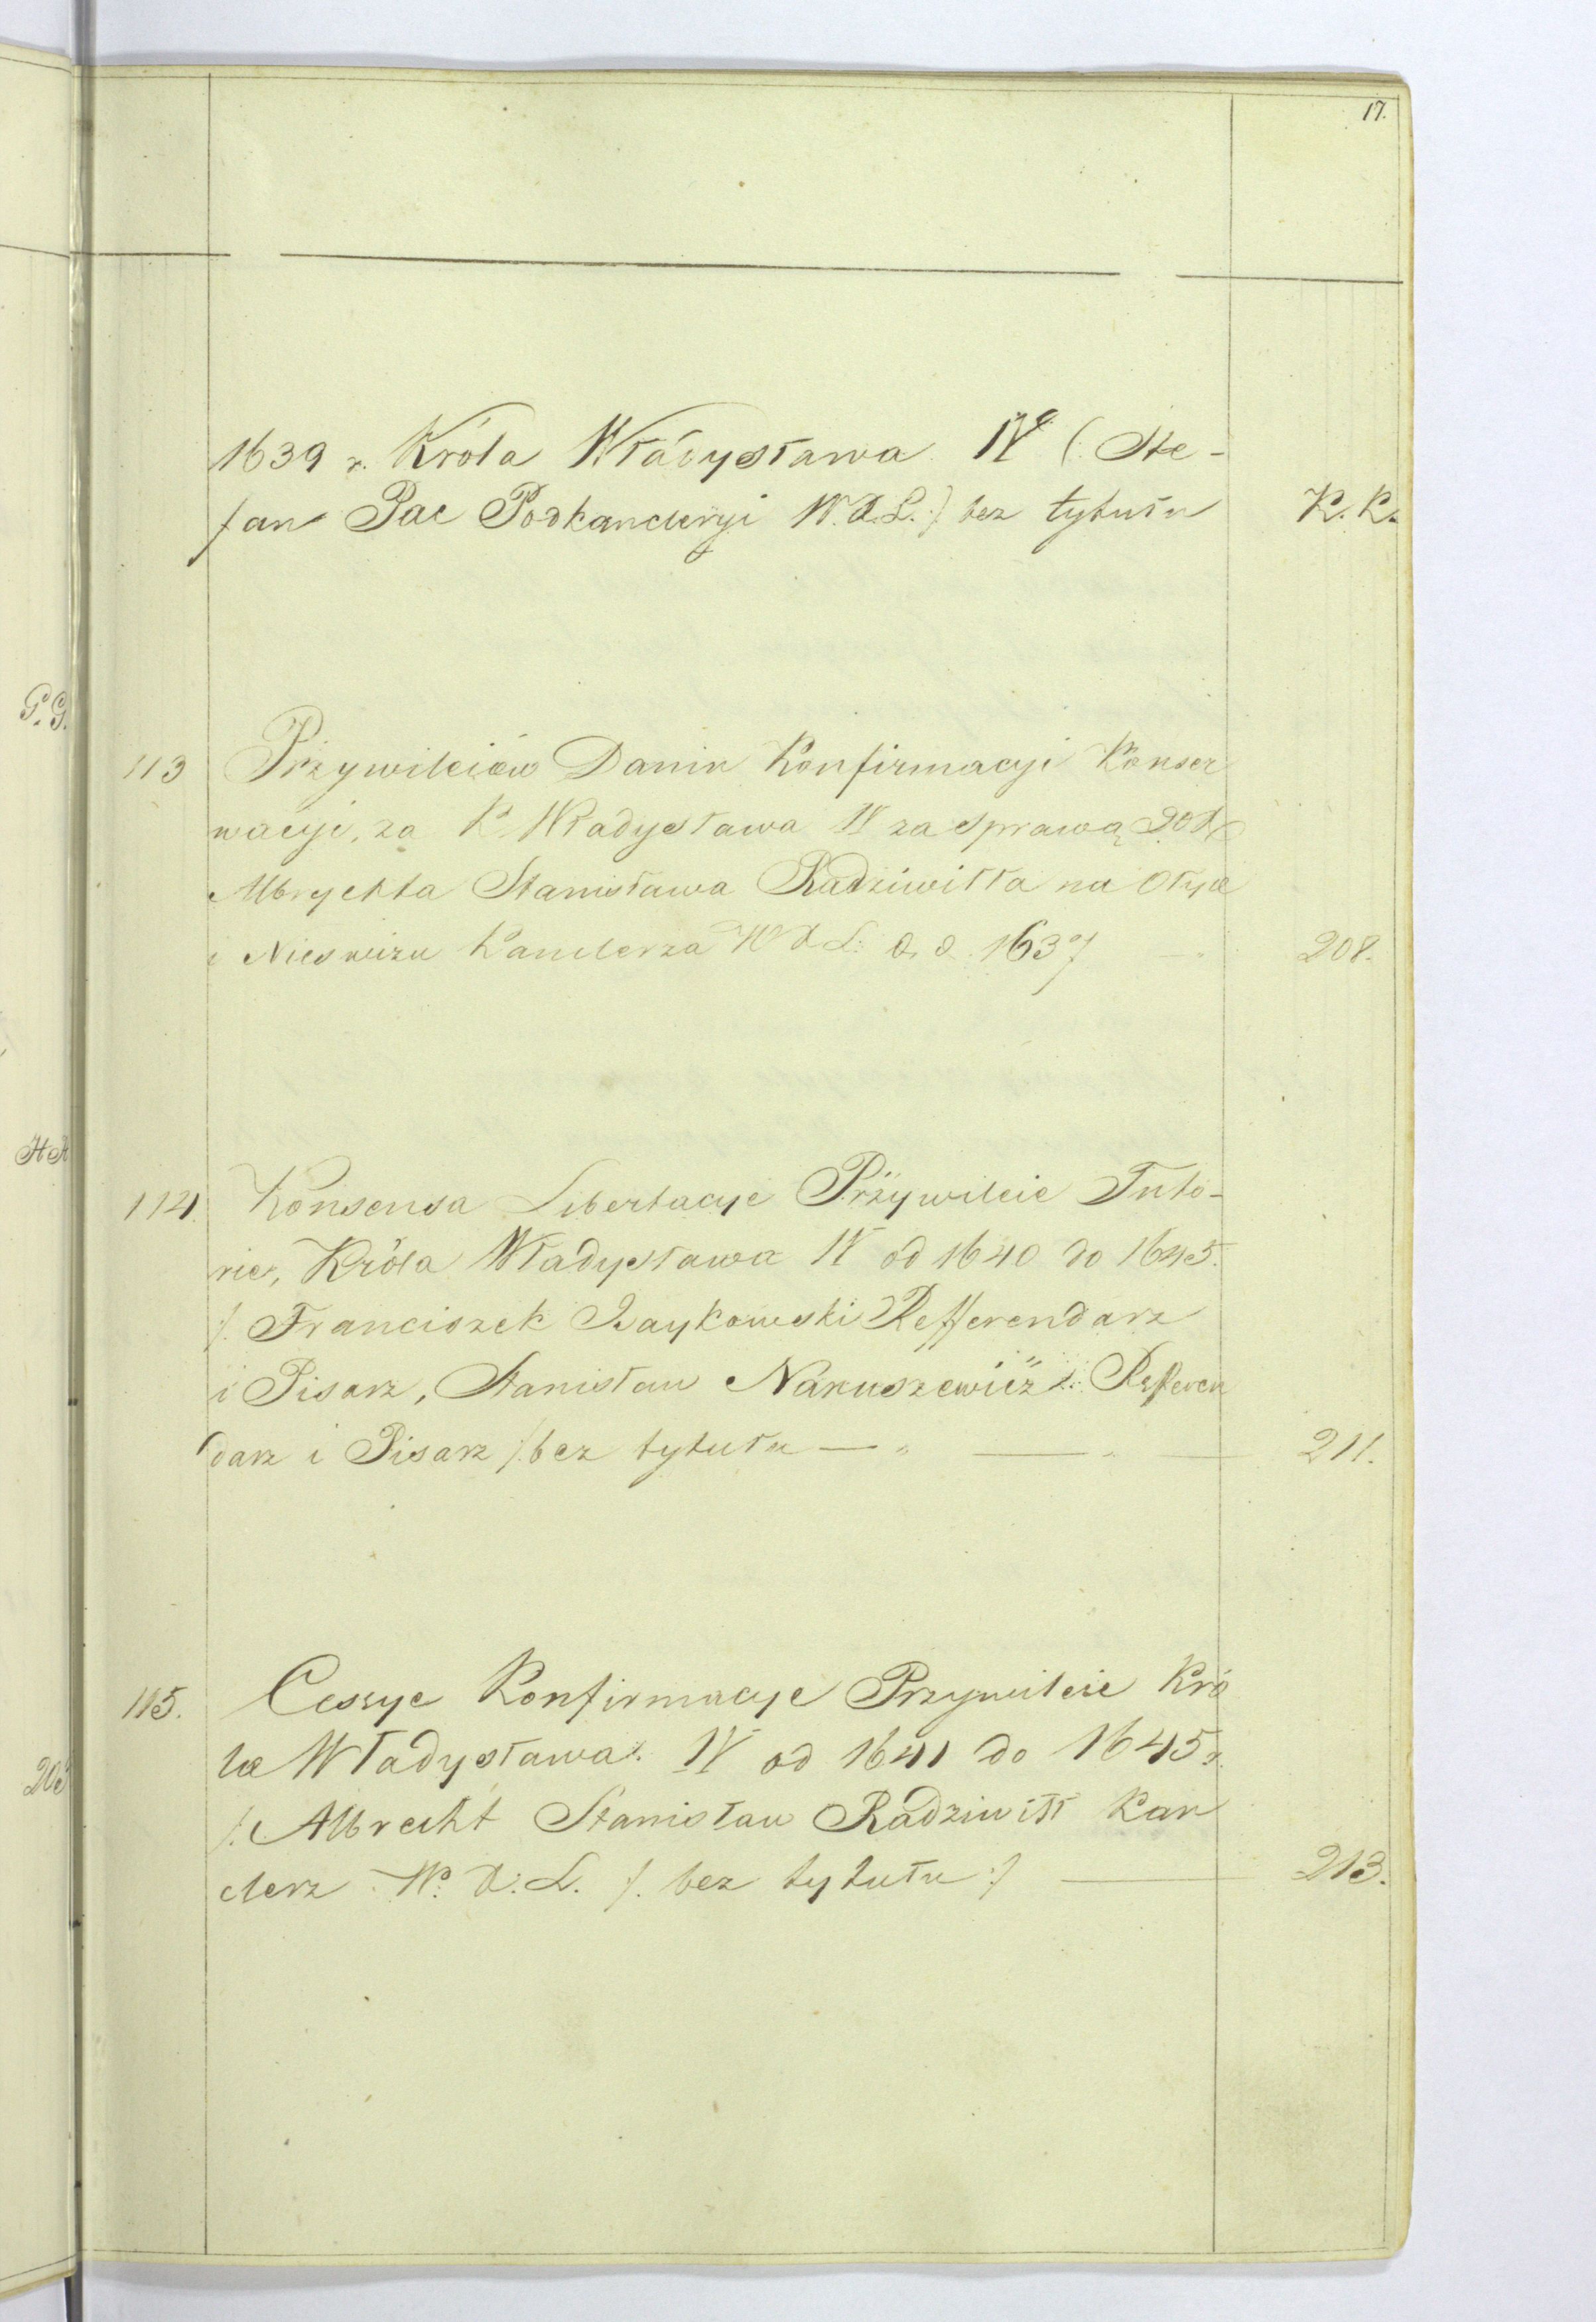 17.
1639 r. Króla Władysława IVº (: Ste-
fan Pac Podkanclerzyi W. X. L. :) bez tytułu K. K.
G. G.
113 Przywileiów Danin Konfirmacyi Konser
wacyi, za K. Władysława IV za sprawą
Albrychta Stanisława Radziwiłła na Ołyce
i Nieswizu Kanclerza W X L: d. d. 1637 208.
H H
114. Konsensa Libertacye Przywileie Tuto-
rie, Króla Władysława IV od 1640 do 1645.
/. Franciszek Isaykowski Refferendarz
i Pisarz, Stanisław Naruszewicz Refferen
darz i Pisarz /. bez tytułu — " — " — 211.
115. Cessye Konfirmacye Przywileie Kró
la Władysława. IV od 1641 do 1645 r.
/. Albrecht Stanisław Radziwiłł Kan
clerz W. X. L. /. bez tytułu :/ — 213.
205